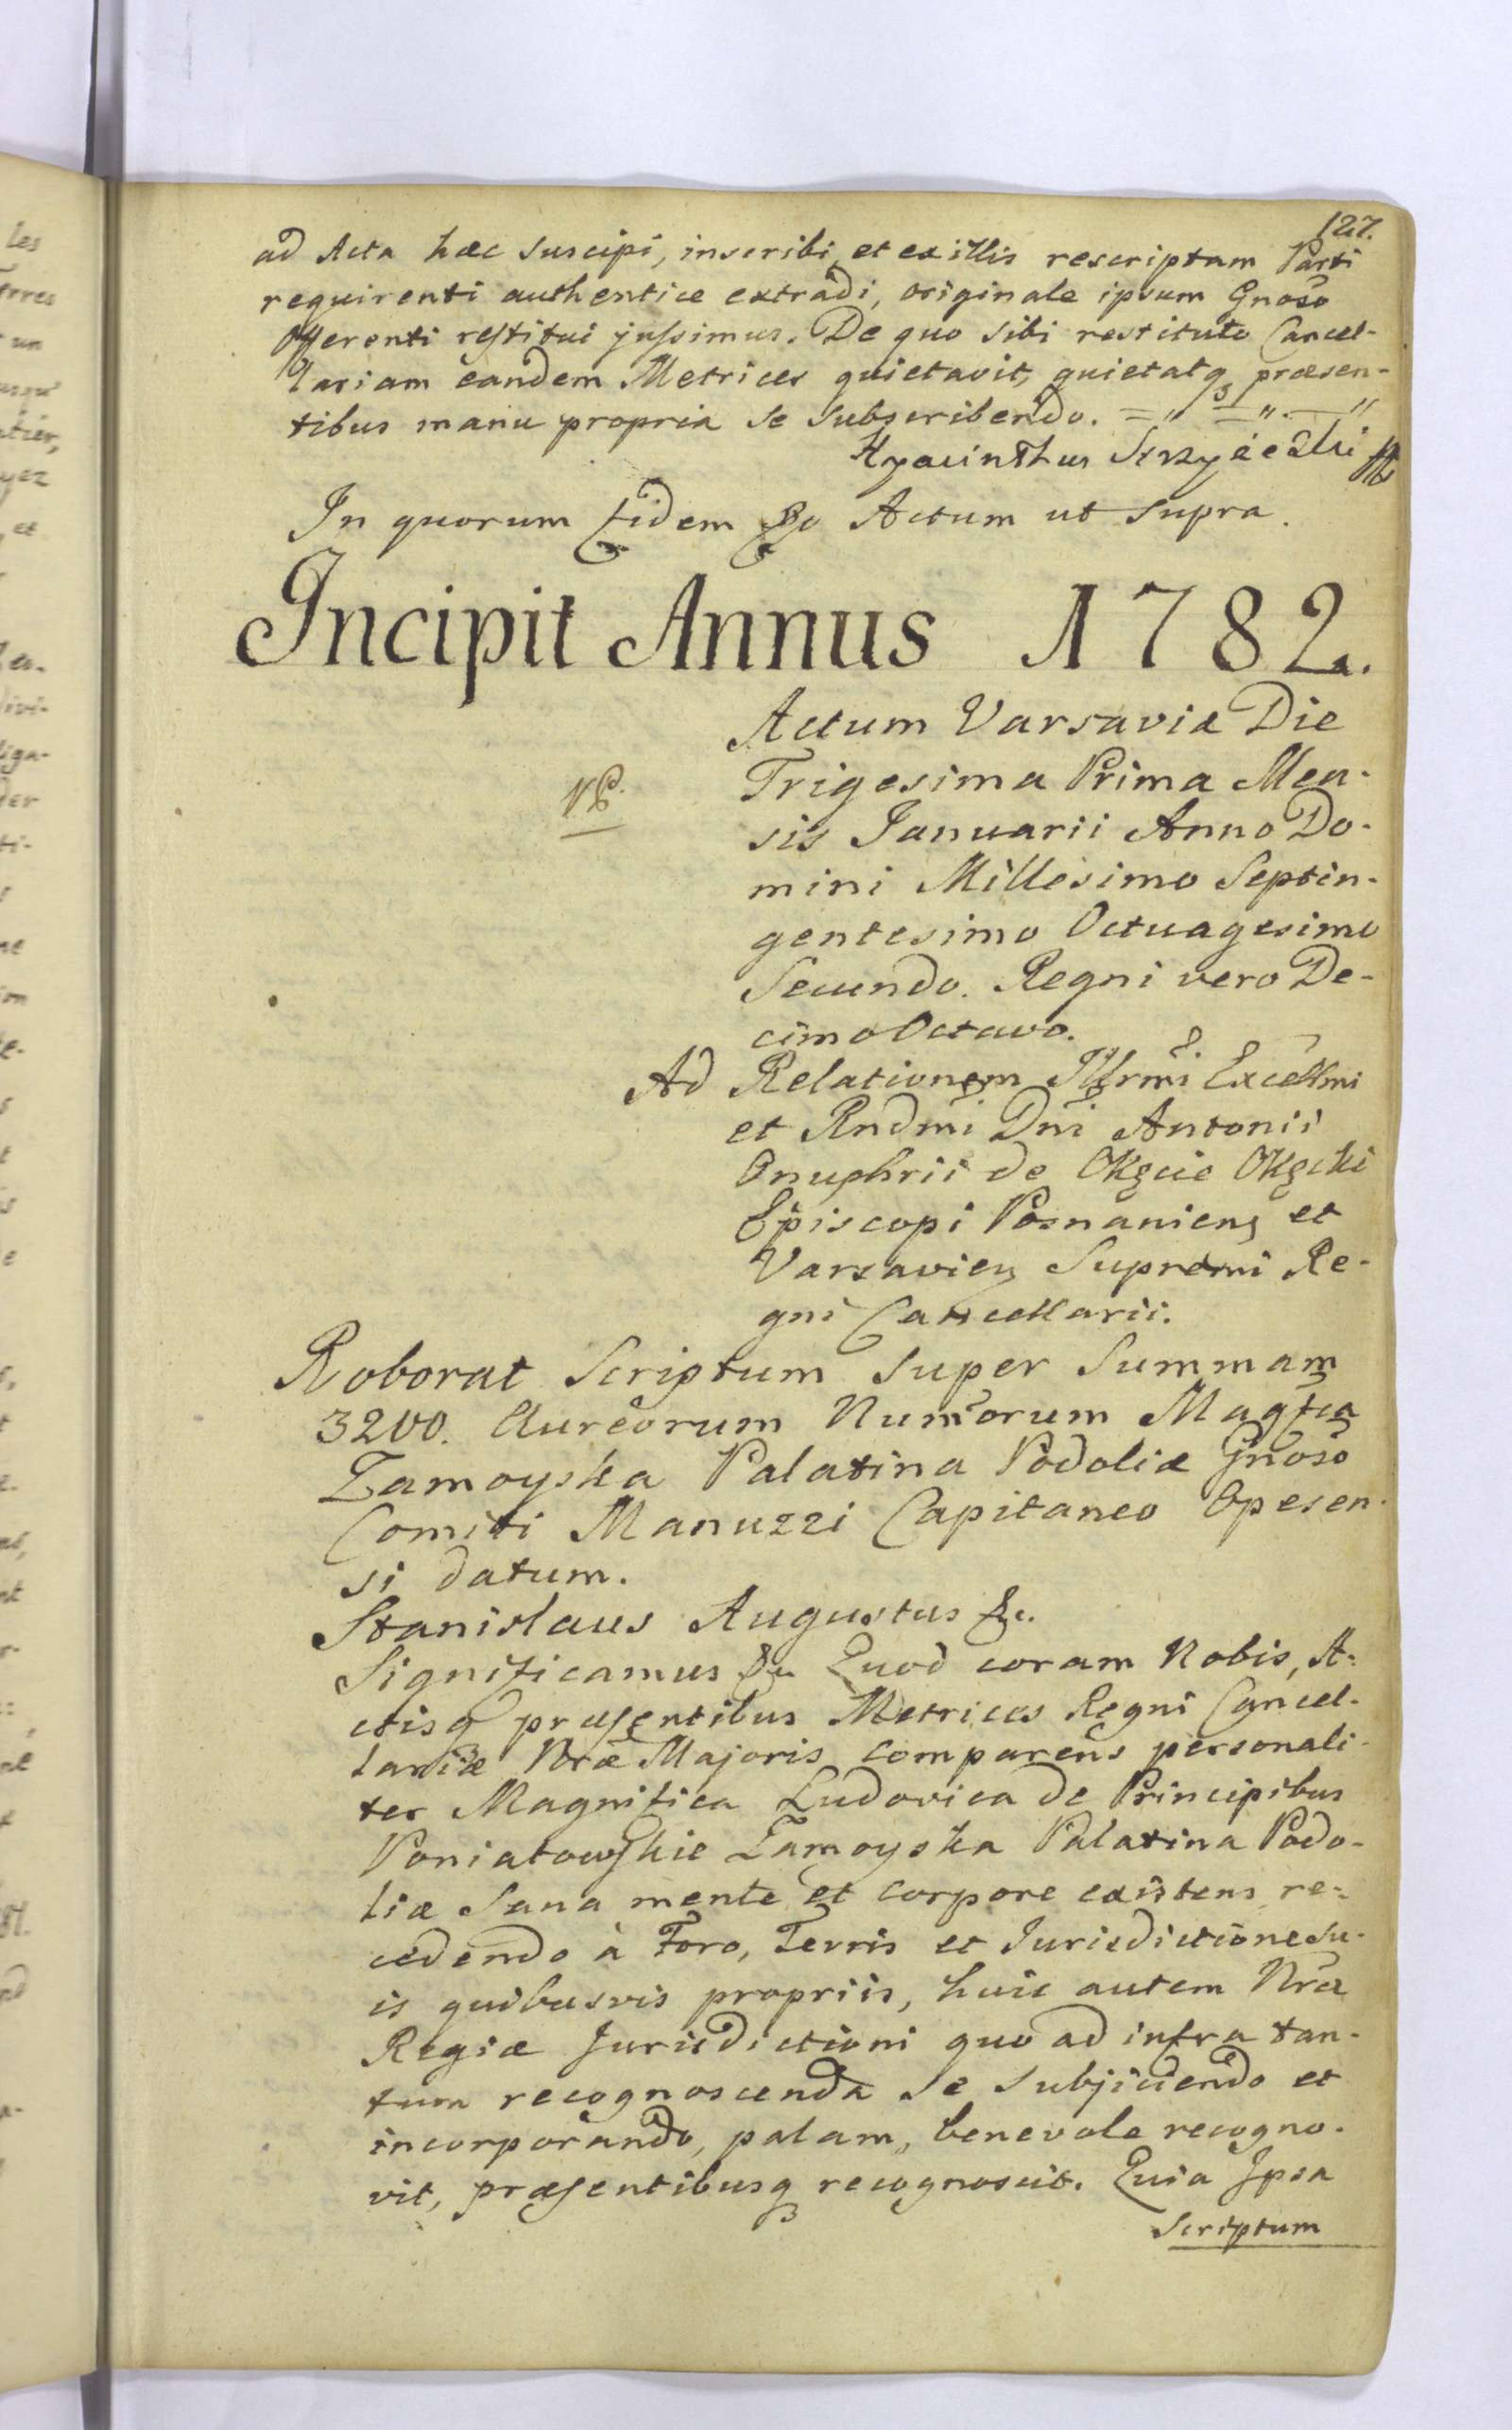 127.
ad Acta hæc suscipi, inscribi, et ex illis rescriptam Parti
requirenti authentice extradi, originale ipsum Gnoso
Offerenti restitui jussimus. De quo sibi restituto Cancel-
lariam eandem Metrices quietavit, quietatq præsen-
tibus manu propria se subscribendo. =" =" —"
Hyacinthus
In quorum fidem &c Actum ut supra.
Incipit Annus 1782.
Actum Varsaviæ Die
Trigesima Prima Men-
sis Januarii Anno Do-
mini Millesimo Septin-
gentesimo Octuagesimo
Secundo. Regni vero De-
cimo Octavo.
Ad Relationem Illrmi Excellmi
et Rndmi Dni Antonii
Onuphrii de Okęcie Okęcki
Episcopi Posnaniens et
Varsavien Supremi Re-
gni Cancellarii.
Roborat Scriptum super Summam
3200. Aureorum Numorum Magfca
Zamoyska Palatina Podoliæ Gnoso
Comiti Manuzzi Capitaneo Opesen-
si datum.
Stanislaus Augustus &c.
Significamus &c Quod coram Nobis, A-
ctisq præsentibus Metrices Regni Cancel-
lariæ Nræ Majoris comparens personali-
ter Magnifica Ludovica de Principibus
Poniatowskie Zamoyska Palatina Podo-
liæ sana mente et corpore existens re-
cedendo à Foro, Terris et Jurisdictione su-
is quibusvis propriis, huic autem Nræ
Regiæ Jurisdictioni quo ad infra tan-
tum recognoscenda se subjiciendo et
incorporando, palam, benevole recogno-
vit, præsentibusq recognoscit. Quia Ipsa
Scriptum